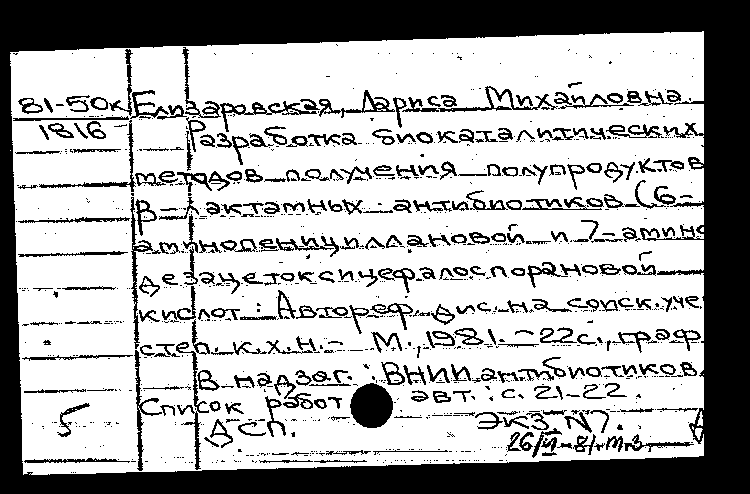 81-50к Елизаровская, Лариса Михайловна.
1816 Разработка биокаталитических
методов получения полупродуктов
В-лактамных антибиотиков (6-
аминопенициллановой и 7-амино
дезацетоксицефалоспорановой
кислот: Автореф. дис. на соиск. уче
степ. к.х.н.- М., 1981. -22с., граф
В надзаг.: ВНИИ антибиотиков.
Список работ авт.: с. 21-22.
5 ДСП. ЭКЗ. N7.